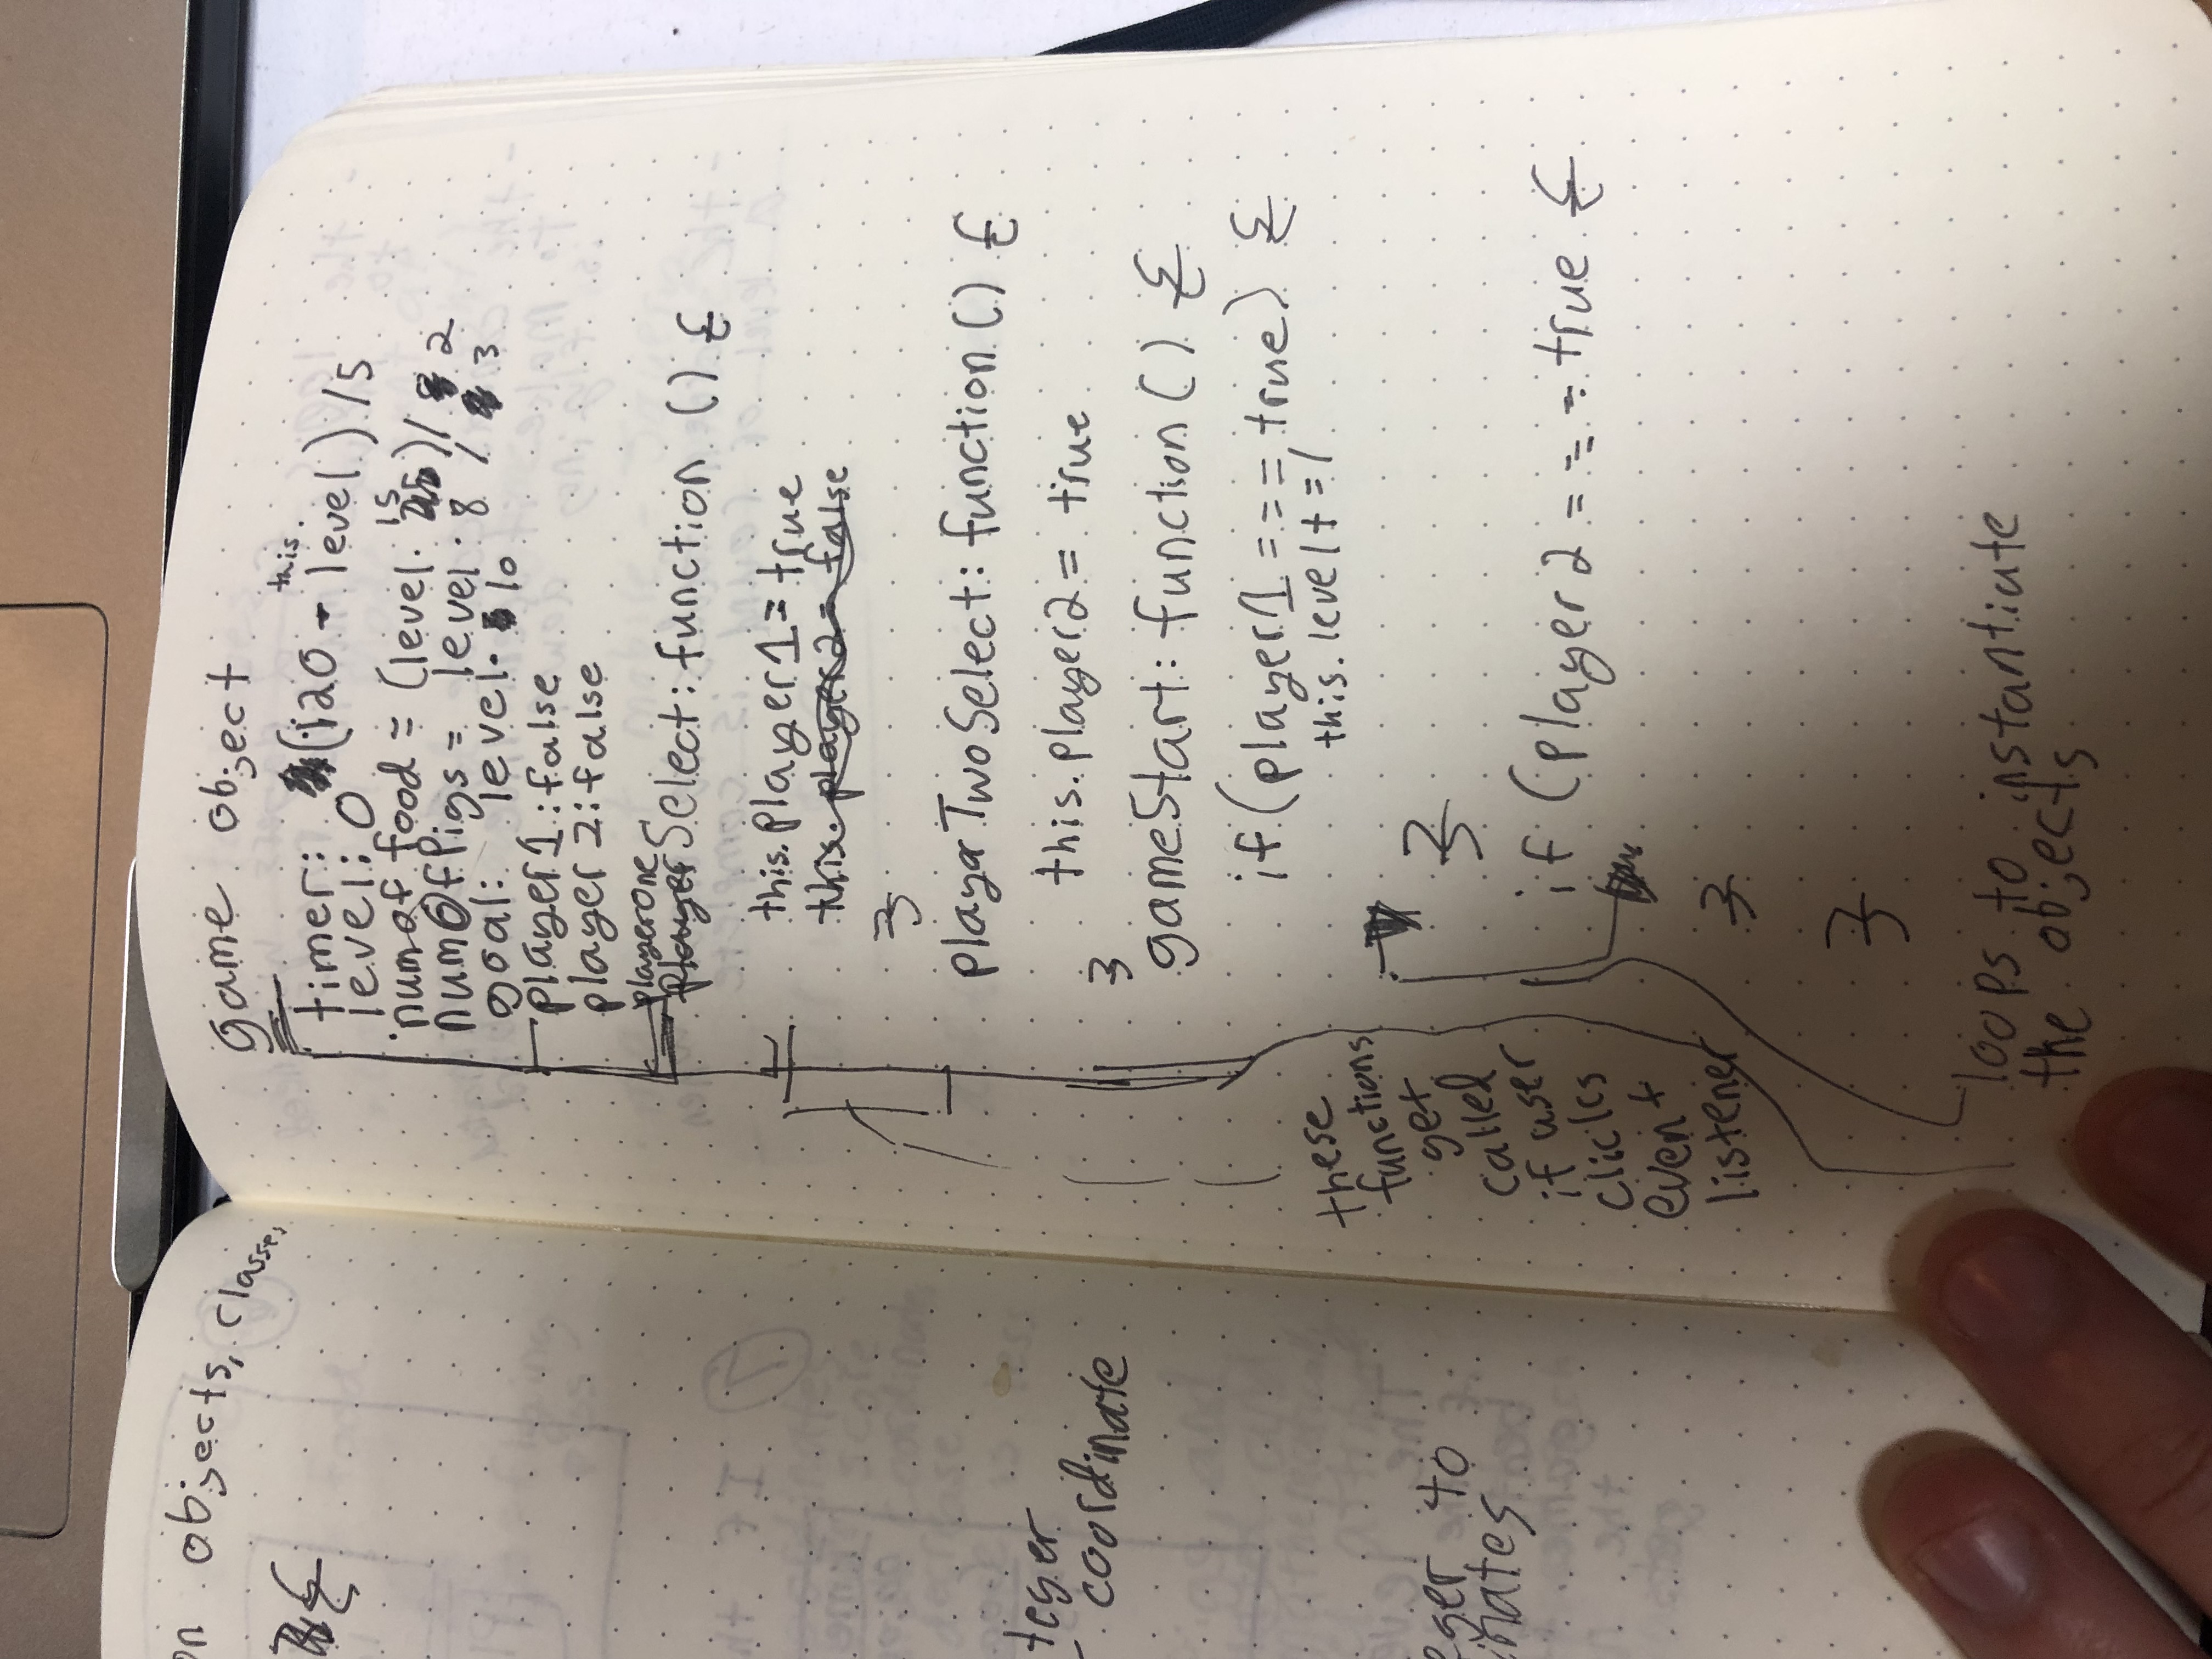 on objects, classes
{
teger
- coordinate
eger to
inates
game object
timer: (120 - this.level) /5
level: 0
num of food = (level · 15)/ 2
numOfPigs = level · 8 / 3
goal: level · 10
player1: false
player 2: false
playerOne
player Select: function () {
this.player1 = true
this. player2 = false
}
playerTwoSelect: function () {
this.player2 = true
}
gameStart: function () {
if (player1 === true) {
this.level += 1
}
if (player2 === true {
}
}
these
functions
get
called
if user
clicks
event
listener
loops to instantiate
the objects